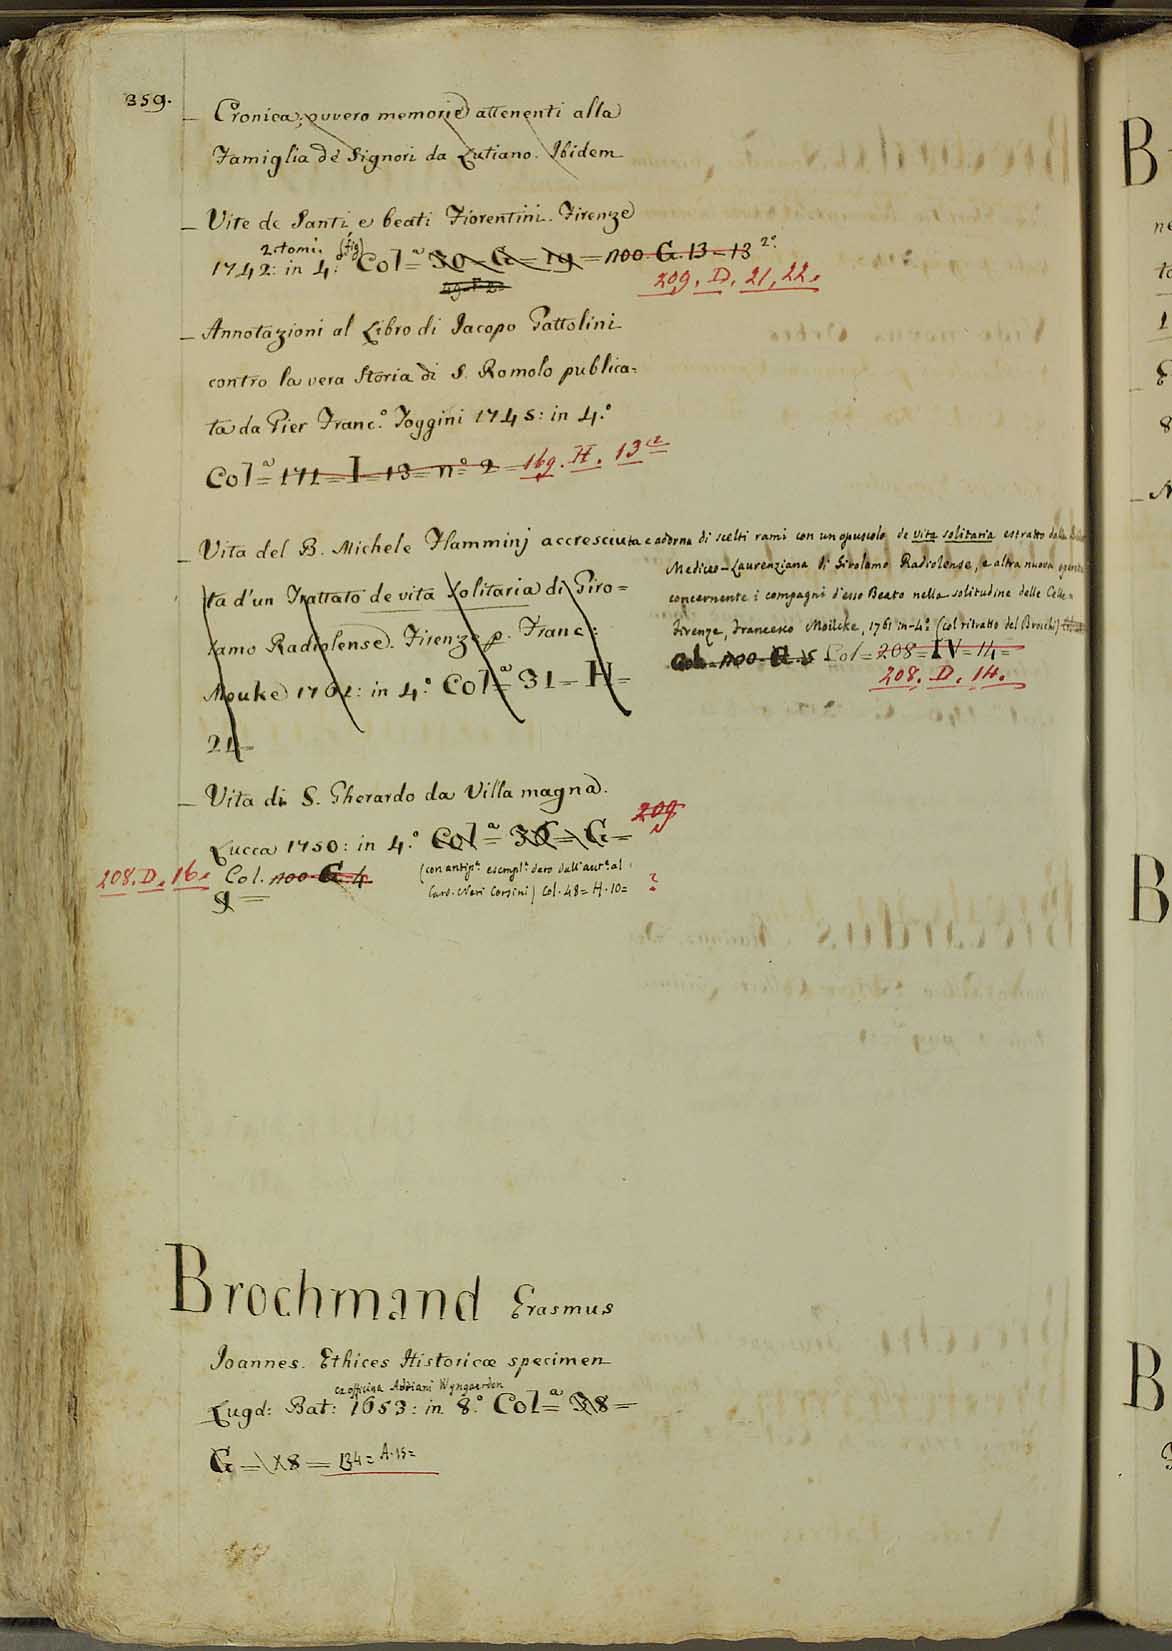 359.
_ Cronica, ovvero memorie attenenti alla
Famiglia de Signori da Lutiano. Ibidem
_ Vite de Santi e beati Fiorentini. Firenze
2. tomi. (fig)
1742: in 4.° Col.ª = 30 = G = 19 = 100. G. 13 = 13 2°.
209. D. 21, 22.
_ Annotazioni al Libro di Jacopo Gattolini
contro la vera Storia di S. Romolo publica=
ta da Pier Franc.° Foggini 1745: in 4.°
Col.ª = 171 = I = 13 = n.° 2 = 169. H. 13
_ Vita del B. Michele Flamminj accresciuta e adorna di scelti rami con un opuscolo de vita solitaria estratto dalla
Mediceo-Laurenziana di Girolamo Radiolense, e altra nuova
concernente i compagni d'esso Beato nella solitudine delle Celle=
Firenze, Francesco Moücke, 1761 in-4.° (col ritratto del Brocchi)
Col. 100. G. 5 Col = 208 = IV = 14 =
208. D. 14.
ta d'un Trattato de vita Solitaria di Giro=
lamo Radiolense. Firenze p. Franc:
Mouke 1761: in 4.° Col.ª = 31 = H =
21 =
_ Vita di S. Gherardo da Villa magna.
Lucca 1750: in 4.° Col.ª = 30 = G =
209
208. D. 16. Col. 100. G. 4
9 =
(con antip.ª esempl.e dato dall'aut.e al
Card. Neri Corsini) Col. 48 = H. 10 = ?
Brochmand Erasmus
Joannes. Ethices Historicæ specimen
ex officina Adriani Wyngaerden
Lugd: Bat: 1653: in 8.° Col.ª = 38 =
G = 18 = 134 = A. 15 =